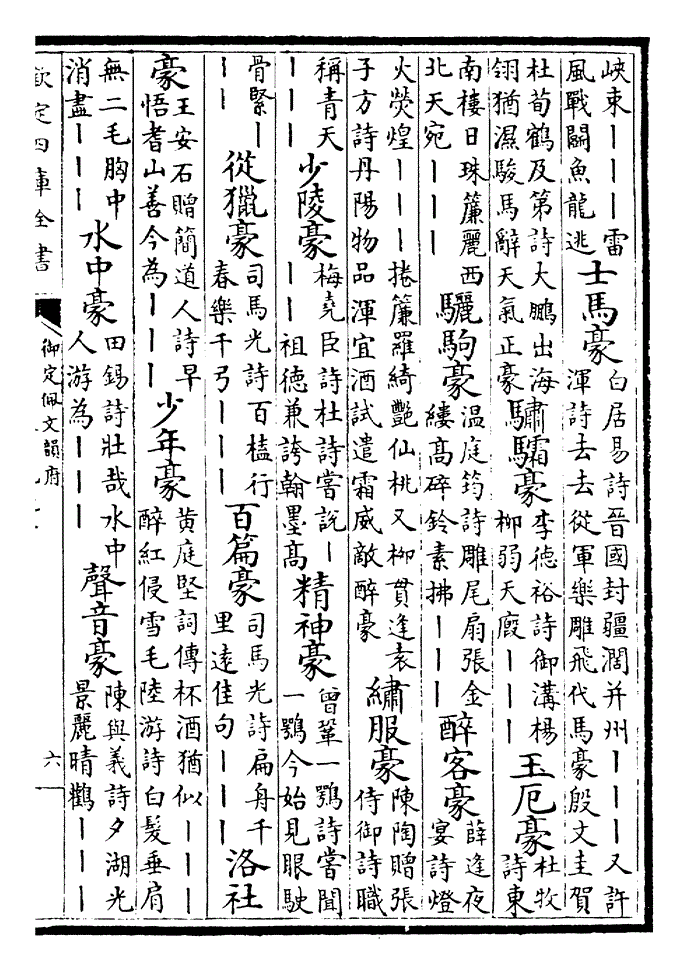 峽東｜｜｜雷風戰鬭魚龍逃士馬豪白居易詩晉國封疆濶并州｜｜｜又許渾詩去去從軍樂雕飛代馬豪殷文圭賀
杜荀鶴及第詩大鵬出海翎猶濕駿馬辭天氣正豪驌驦豪李德裕詩御溝楊柳弱天廄｜｜｜玉卮豪杜牧詩東
南樓日珠簾麗西北天宛｜｜｜驪駒豪温庭筠詩雕尾扇張金縷高碎鈴素拂｜｜｜醉客豪薛逢夜宴詩燈
火熒煌｜｜｜捲簾羅綺艷仙桃又柳貫逢袁子方詩丹陽物品渾宜酒試遣霜威敵醉豪繡服豪陳陶贈張侍御詩職
稱青天｜｜｜少陵豪梅堯臣詩杜詩嘗說｜｜｜祖德兼誇翰墨高精神豪曾鞏一鶚詩嘗聞一鶚今始見眼駛
骨緊｜｜｜從獵豪司馬光詩百榼行春樂千弓｜｜｜百篇豪司馬光詩扁舟千里遠佳句｜｜｜洛社
豪王安石贈簡道人詩早悟耆山善今為｜｜｜少年豪黄庭堅詞傳杯酒猶似｜｜｜醉紅侵雪毛陸游詩白髮垂肩
無二毛胸中消盡｜｜｜水中豪田錫詩壯哉水中人游為｜｜｜聲音豪陳與義詩夕湖光景麗晴鸛｜｜｜
欽定四庫全書
御定佩文韻府
六